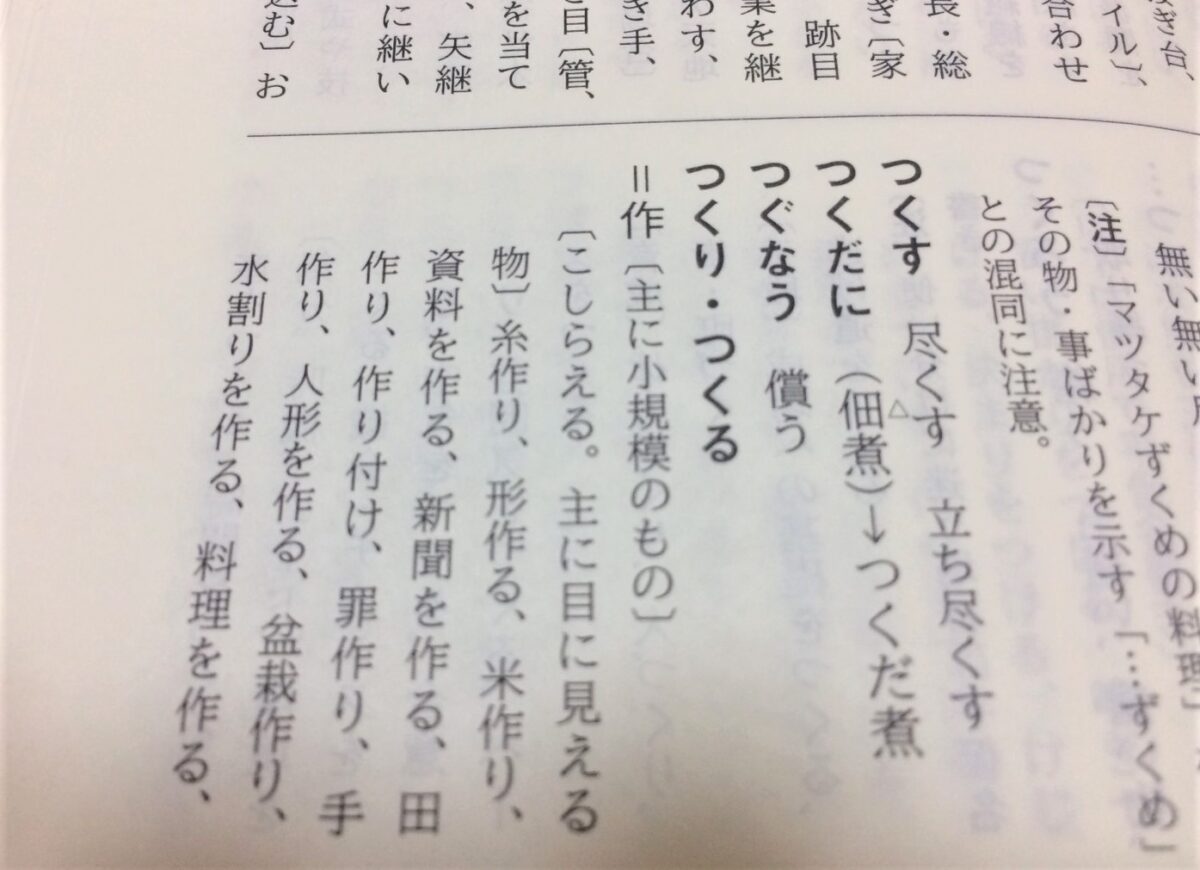 なぎ台、
イル〕、
合わせ
長・総
ぎ〔家
跡目
業を継
わす、
き手、
目〔管、
を当て
、矢継
に継い
込む〕お
無い無い
めの料理」
〔注〕「マツタケずくめ
その物・事ばかりを示す「…ずくめ」
との混同に注意。
つくす 尽くす 立ち尽くす
つくだに (佃△煮)→つくだ煮
つぐなう 償う
つくり・つくる
=作〔主に小規模のもの〕
〔こしらえる。主に目に見える
物〕糸作り、形作る、米作り、
資料を作る、新聞を作る、田
作り、作り付け、罪作り、手
作り、人形を作る、盆栽作り、
水割りを作る、料理を作る、